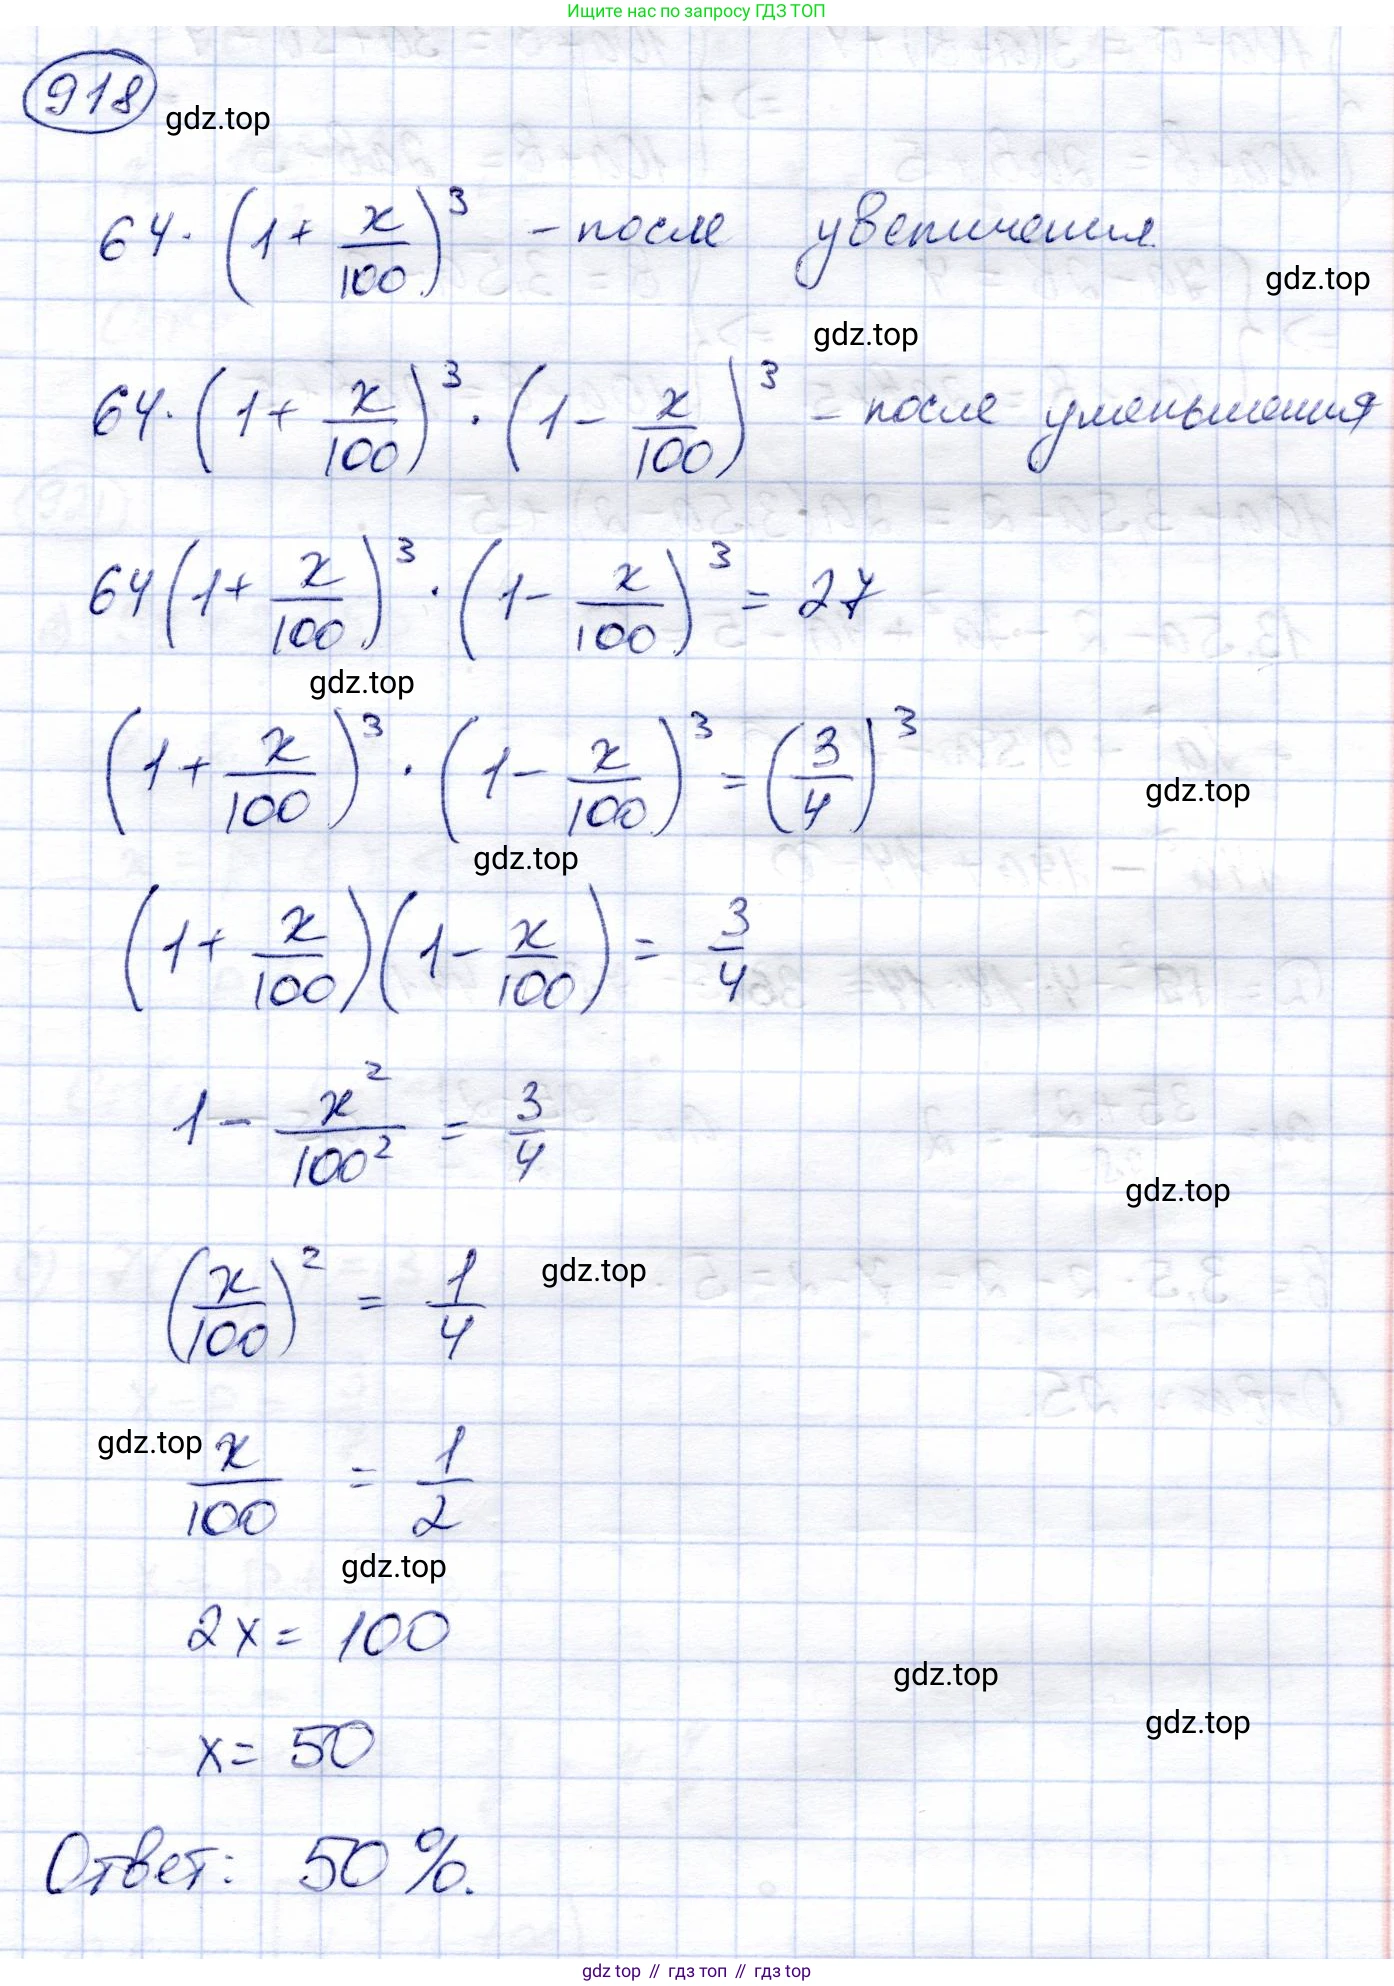 Ищите нас по запросу ГДЗ ТОП
918
gdz.top
64·(1+x/100)³ - после увеличения
gdz.top
gdz.top
64·(1+x/100)³·(1-x/100)³ - после уменьшения
64(1+x/100)³·(1-x/100)³ = 27
gdz.top
(1+x/100)³·(1-x/100)³ = (3/4)³
gdz.top
gdz.top
(1+x/100)(1-x/100) = 3/4
1-x²/100² = 3/4
gdz.top
(x/100)² = 1/4
gdz.top
gdz.top
x/100 = 1/2
gdz.top
2x = 100
gdz.top
gdz.top
x = 50
Ответ: 50%.
gdz top // гдз топ // gdz top